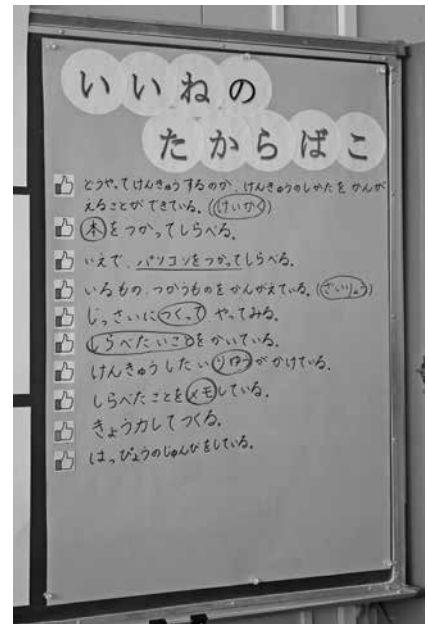 いいねの
たからばこ
どうやってけんきゅうするのか、けんきゅうのしかたをかんが
えることができている。((けいかく))
本をつかってしらべる。
いえで、パソコンをつかってしらべる。
いるもの、つかうものをかんがえている。((ざいりょう))
じっさいにつくってやってみる。
しらべたいことをかいている。
けんきゅうしたいリゆうがかけている。
しらべたことをメモしている。
きょう力してつくる。
はっぴょうのじゅんびをしている。